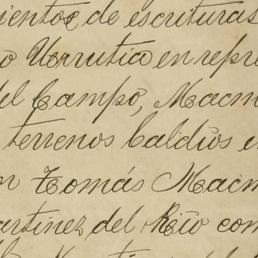 ientos de escrituras
o Urrutia en repre
del Campo, Macm
terrenos baldios e
Tomás Macm
artinez del Rio com